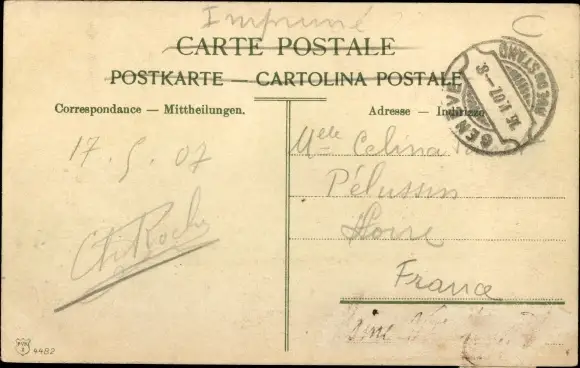 Imprimé
CARTE POSTALE
POSTKARTE — CARTOLINA POSTALE
Correspondance — Mittheilungen.
Adresse — Indirizzo
GENÈVE
RUE DU STAND
17. 5. 07
Melle Celina
Pélussin
Loire
France
4482